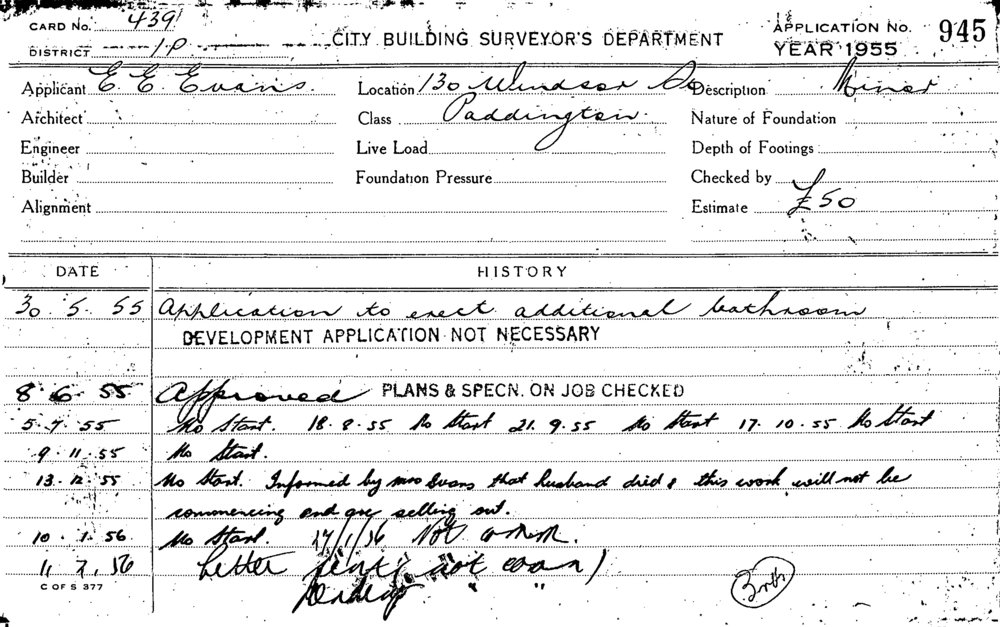 CARD No. 439
DISTRICT 1P
CITY BUILDING SURVEYOR'S DEPARTMENT
APPLICATION No. 945
YEAR 1955
Applicant E E Evans. Location 130 Windsor Description Minor
Architect Class Paddington. Nature of Foundation
Engineer Live Load Depth of Footings
Builder Foundation Pressure Checked by
Alignment Estimate £50
DATE HISTORY
30. 5. 55 Application to erect additional bathroom
DEVELOPMENT APPLICATION NOT NECESSARY
8. 6. 55 Approved PLANS & SPECN. ON JOB CHECKED
5. 7. 55 No Start. 18. 8. 55 No Start 21. 9. 55 No Start 17. 10. 55 No Start
9. 11. 55 No Start.
13. 12. 55 No Start. Informed by Mrs Evans that husband died & this work will not be
commencing and are selling out.
10. 1. 56 No Start. 17/1/56 Not
Letter sent not
C OF S 377